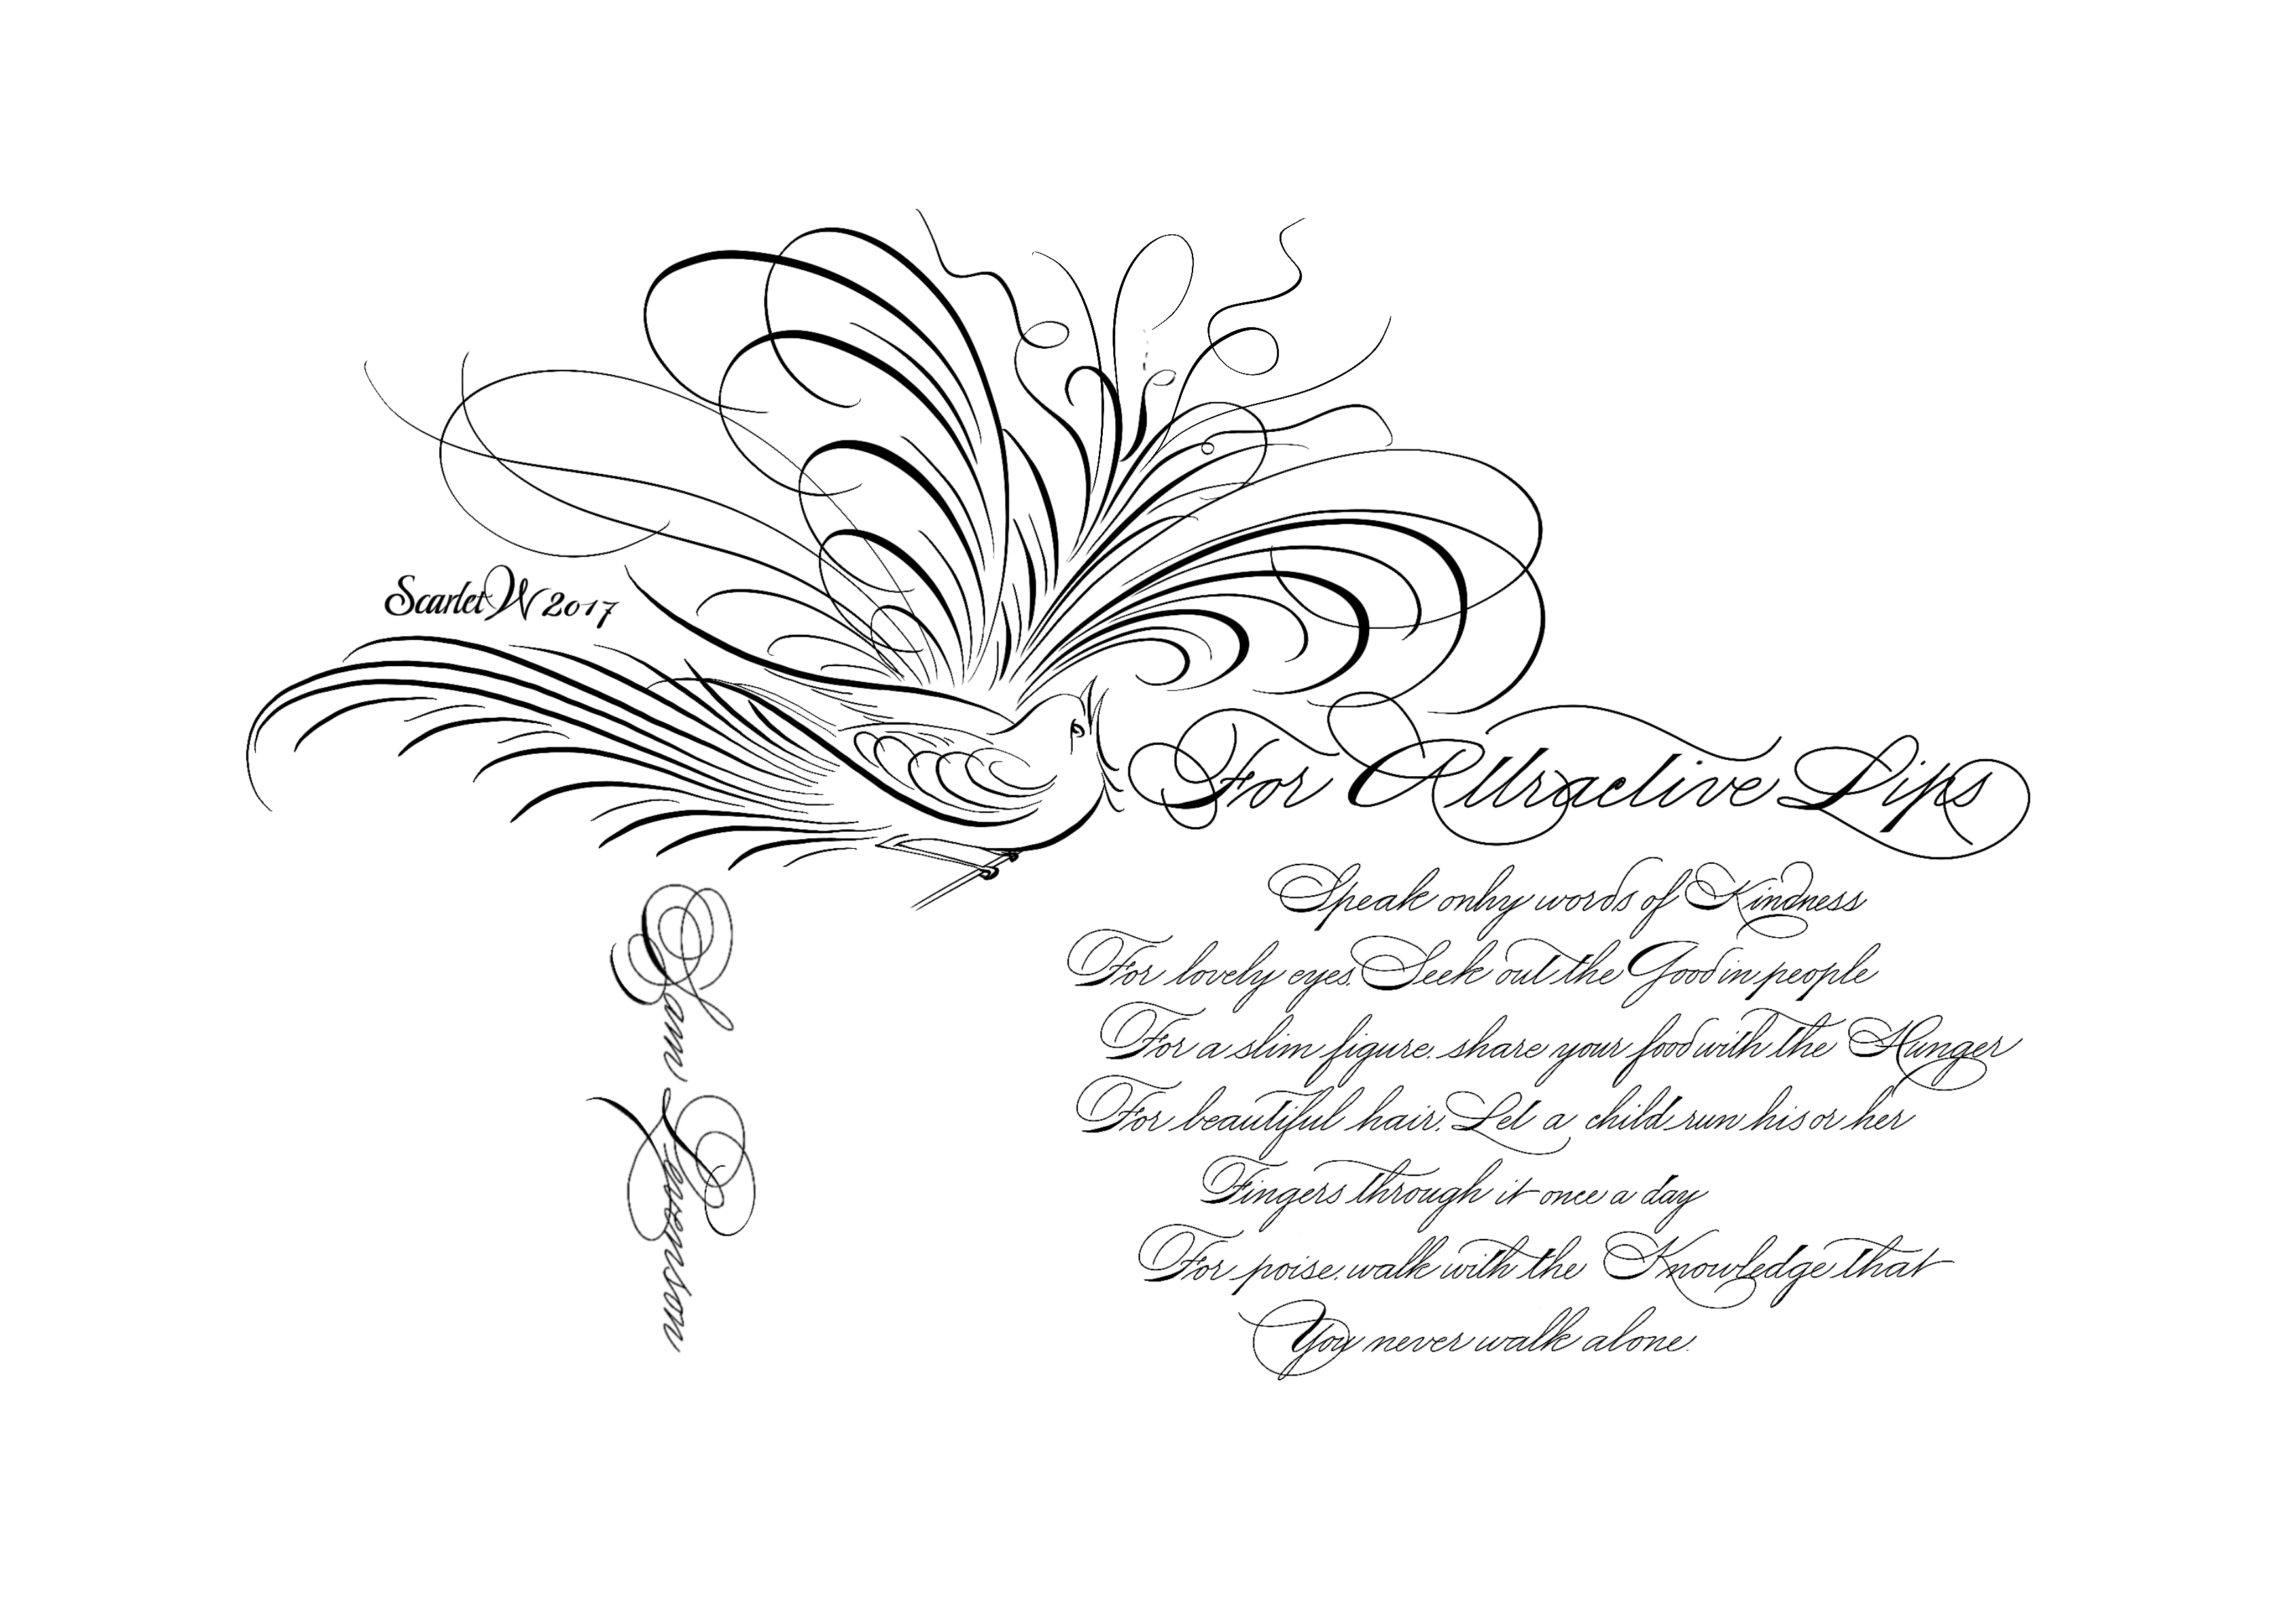 Scarlet W 2017
For Attractive Lips
Speak only words of Kindness
For lovely eyes. Seek out the Good in people
For a slim figure. share your food with the Hunger
For beautiful hair. Let a child run his or her
Fingers through it once a day
For poise. walk with the Knowledge that
You never walk alone.
Sam